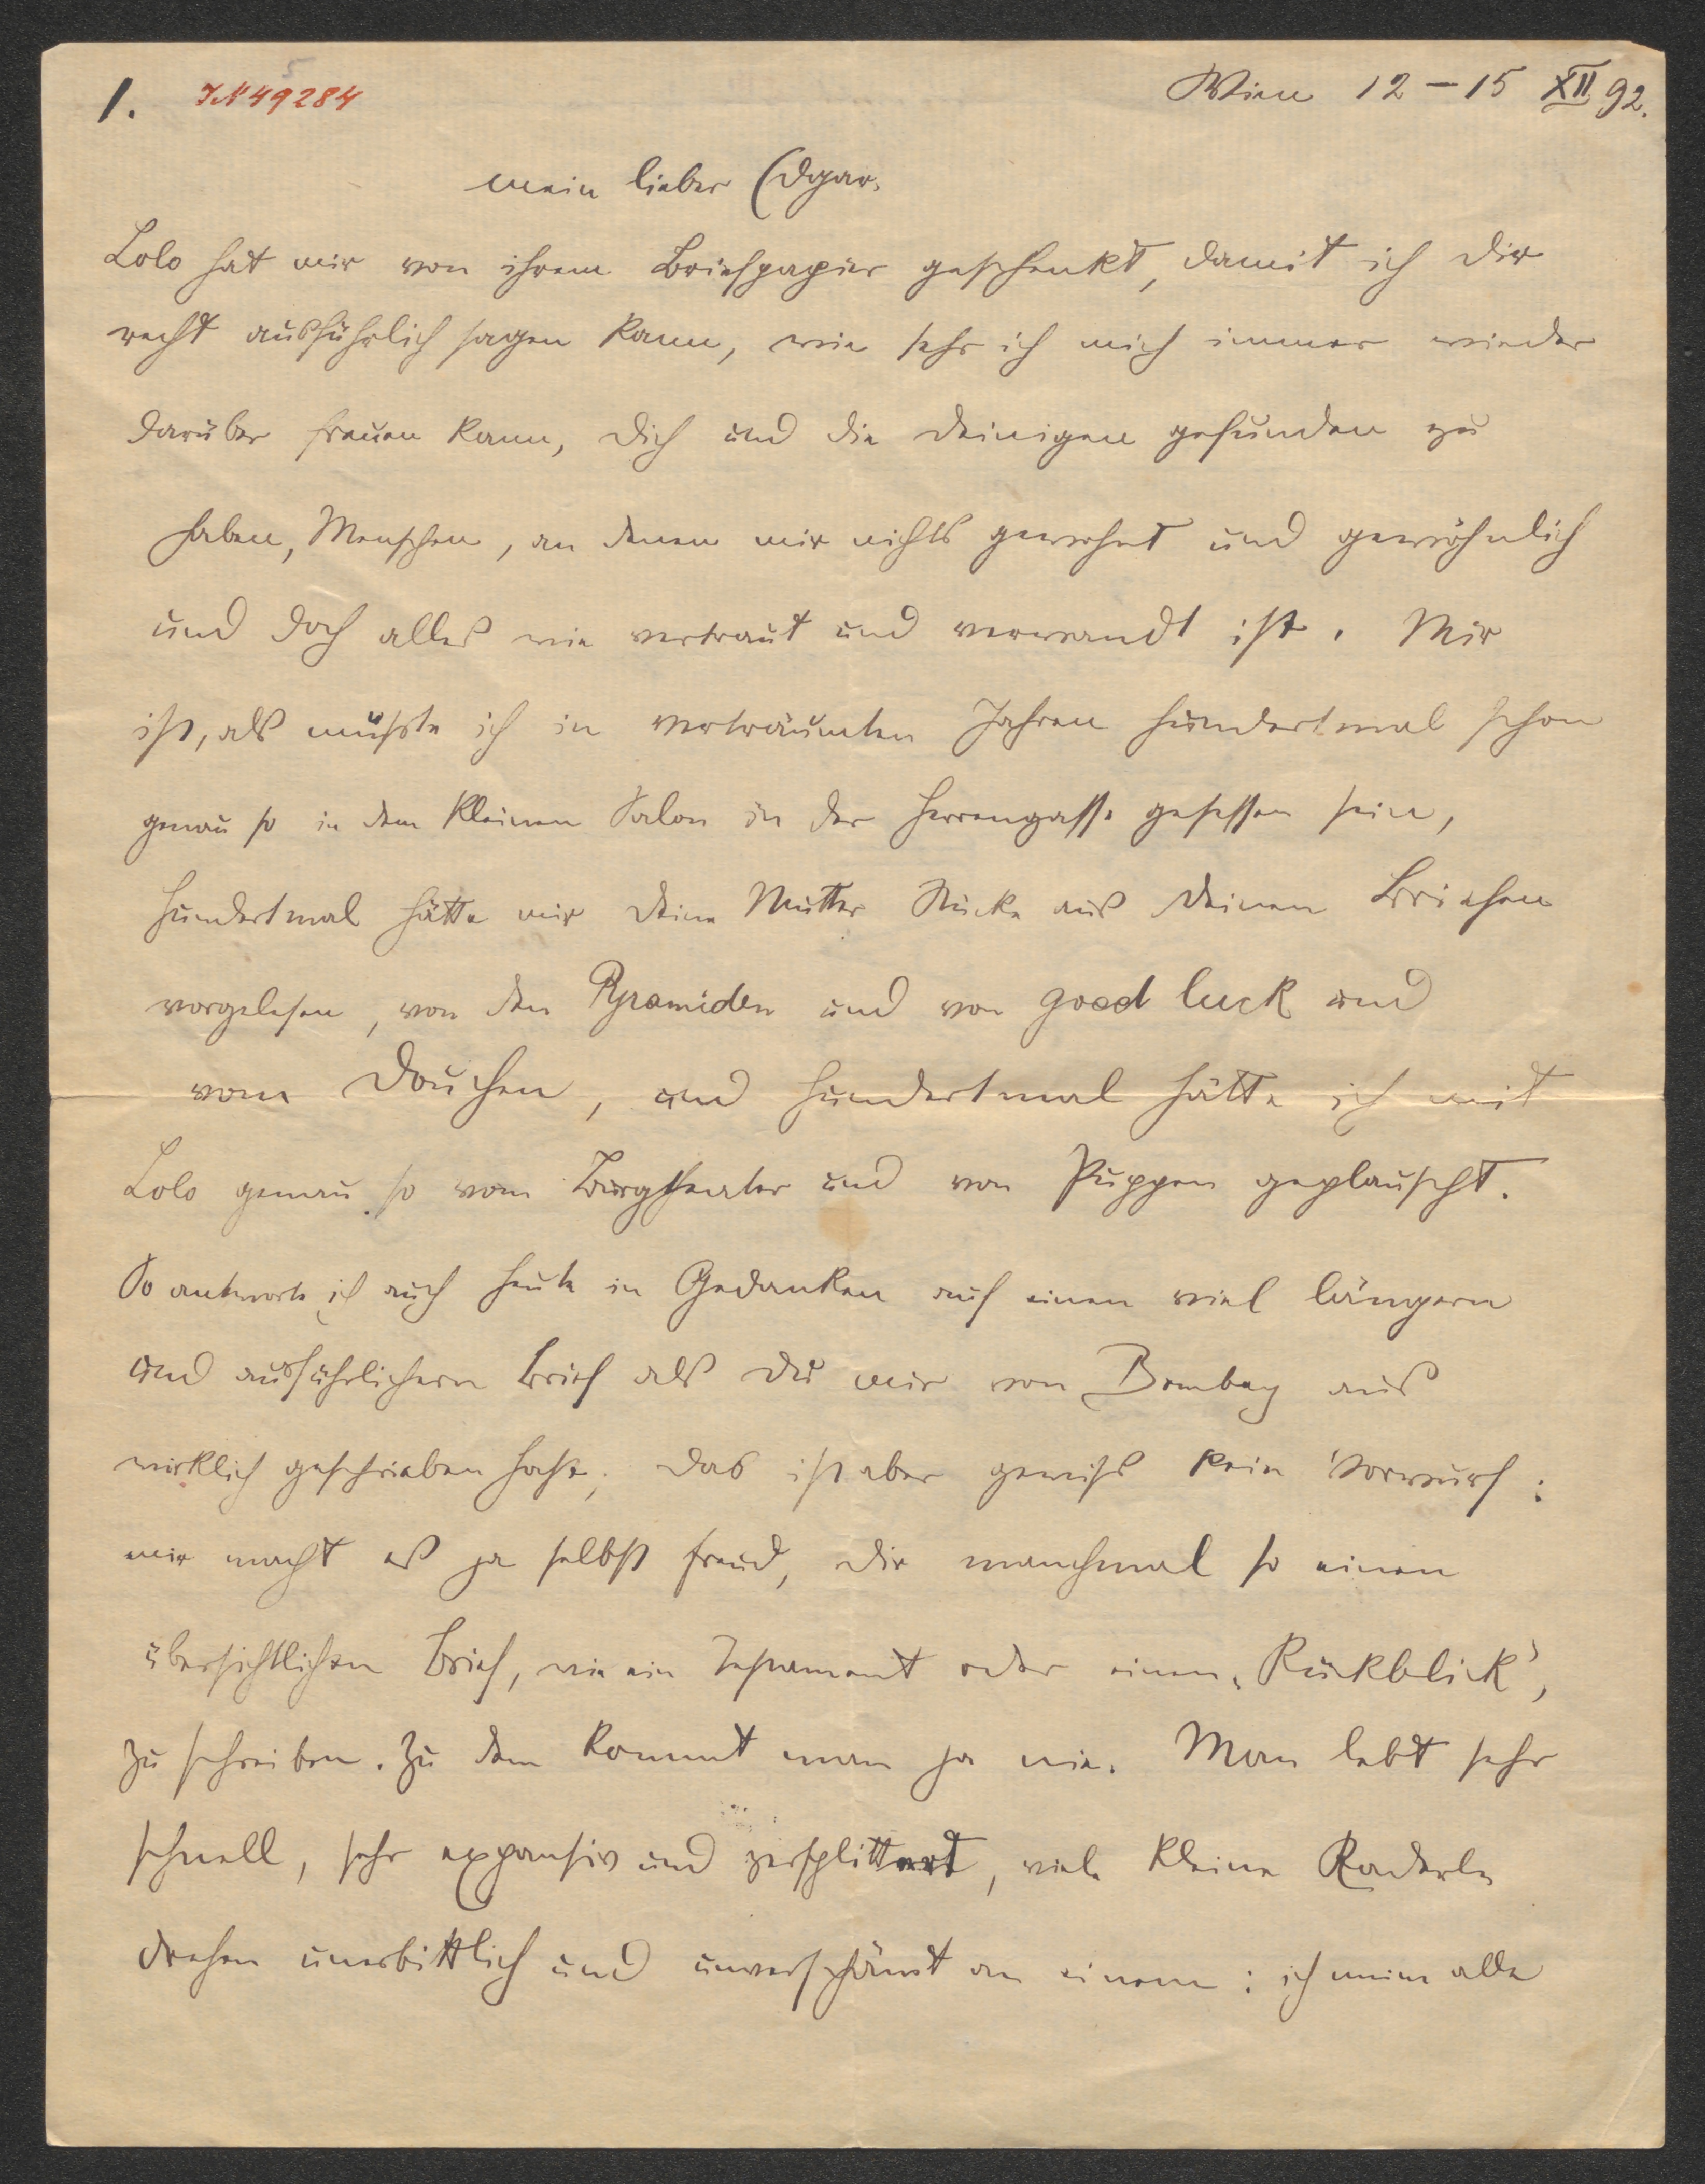 1.
5
IN 49284
Wien 12–15 XII 92.
mein lieber Edgar.
Lolo hat mir von ihrem Briefpapier geschenkt, damit ich Dir
recht ausführlich sagen kann, wie sehr ich mich immer wieder
darüber freuen kann, Dich und die Deinigen gefunden zu
haben, Menschen, an denen mir nichts gewohnt und gewöhnlich
und doch alles wie vertraut und verwandt ist. Mir
ist, als müsste ich in verträumten Jahren hundertmal schon
genau so in dem kleinen Salon in der Herrengasse gesessen sein,
hundertmal hätte mir Deine Mutter Stücke aus Deinen Briefen
vorgelesen, von den Pyramiden und von good luck und
vom Douchen, und hundertmal hätte ich mit
Lolo genau so vom Burgtheater und von Puppen geplauscht.
So antworte ich auch heute in Gedanken auf einen viel längern
und ausführlichern Brief als Du mir von Bombay aus
wirklich geschrieben hast; das ist aber gewiss kein Vorwurf:
mir macht es ja selbst Freud, Dir manchmal so einen
übersichtlichen Brief, wie ein Testament oder einen „Rückblick",
zu schreiben. Zu dem kommt man ja nie. Man lebt sehr
schnell, sehr expansiv und zersplittert, viele kleine Raderln
drehen unerbittlich und unverschämt an einem: ich meine alle